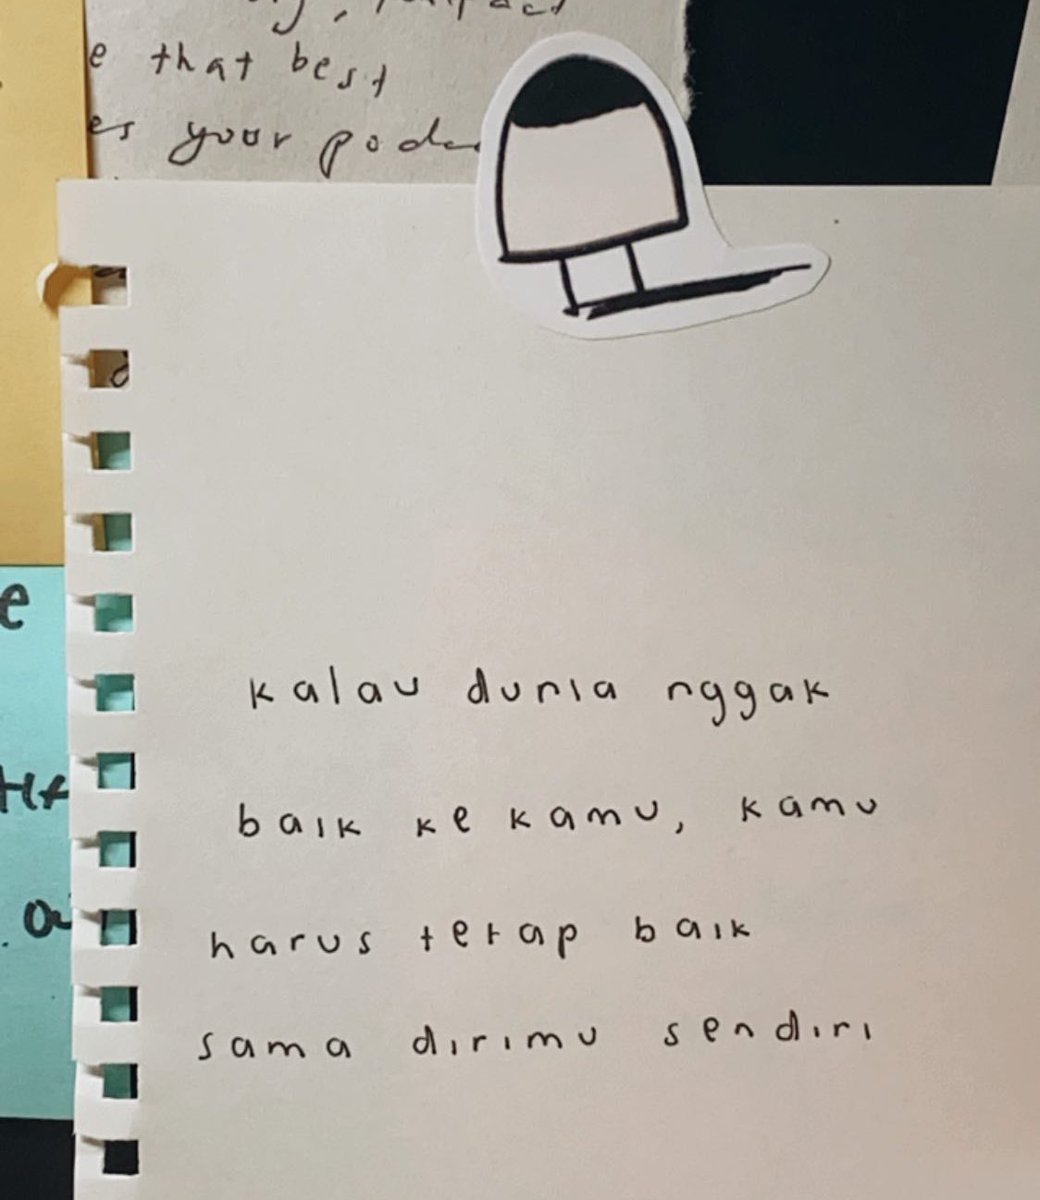 that best
your
kalau dunia nggak
baik ke kamu, kamu
harus tetap baik
sama dirimu sendiri